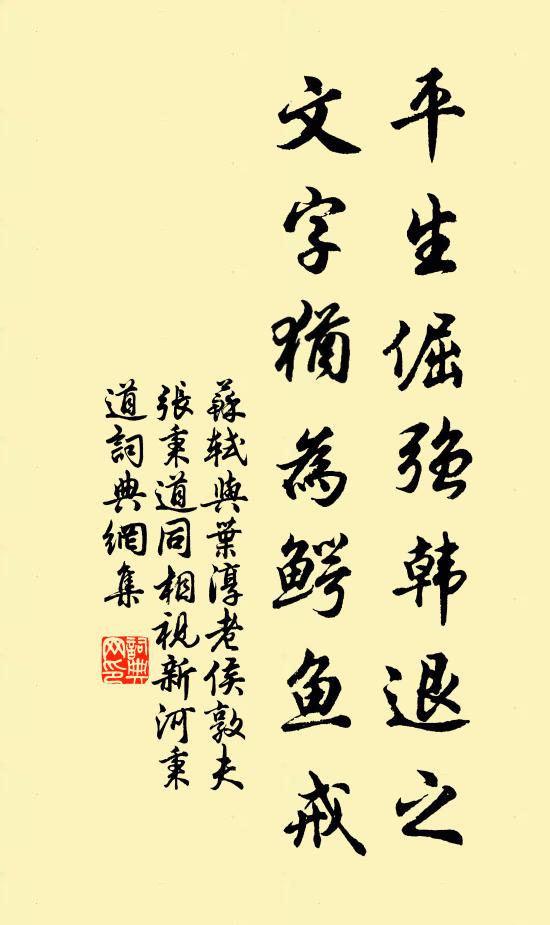 平生倔强韩退之
文字猶為鳄鱼戒
蘇軾與葉淳老侯敦夫
張秉道同相視新河秉
道詞典網集
詞典網印